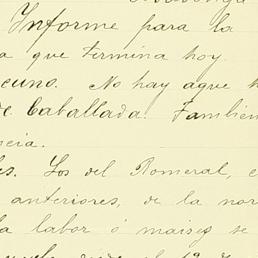 Informe para la
a que termina hoy.
cuno. No hay aque h
de Caballada. Tambien
cia.
s. Los del Romeral, e
anteriores, de la nor
a labor ó maises se